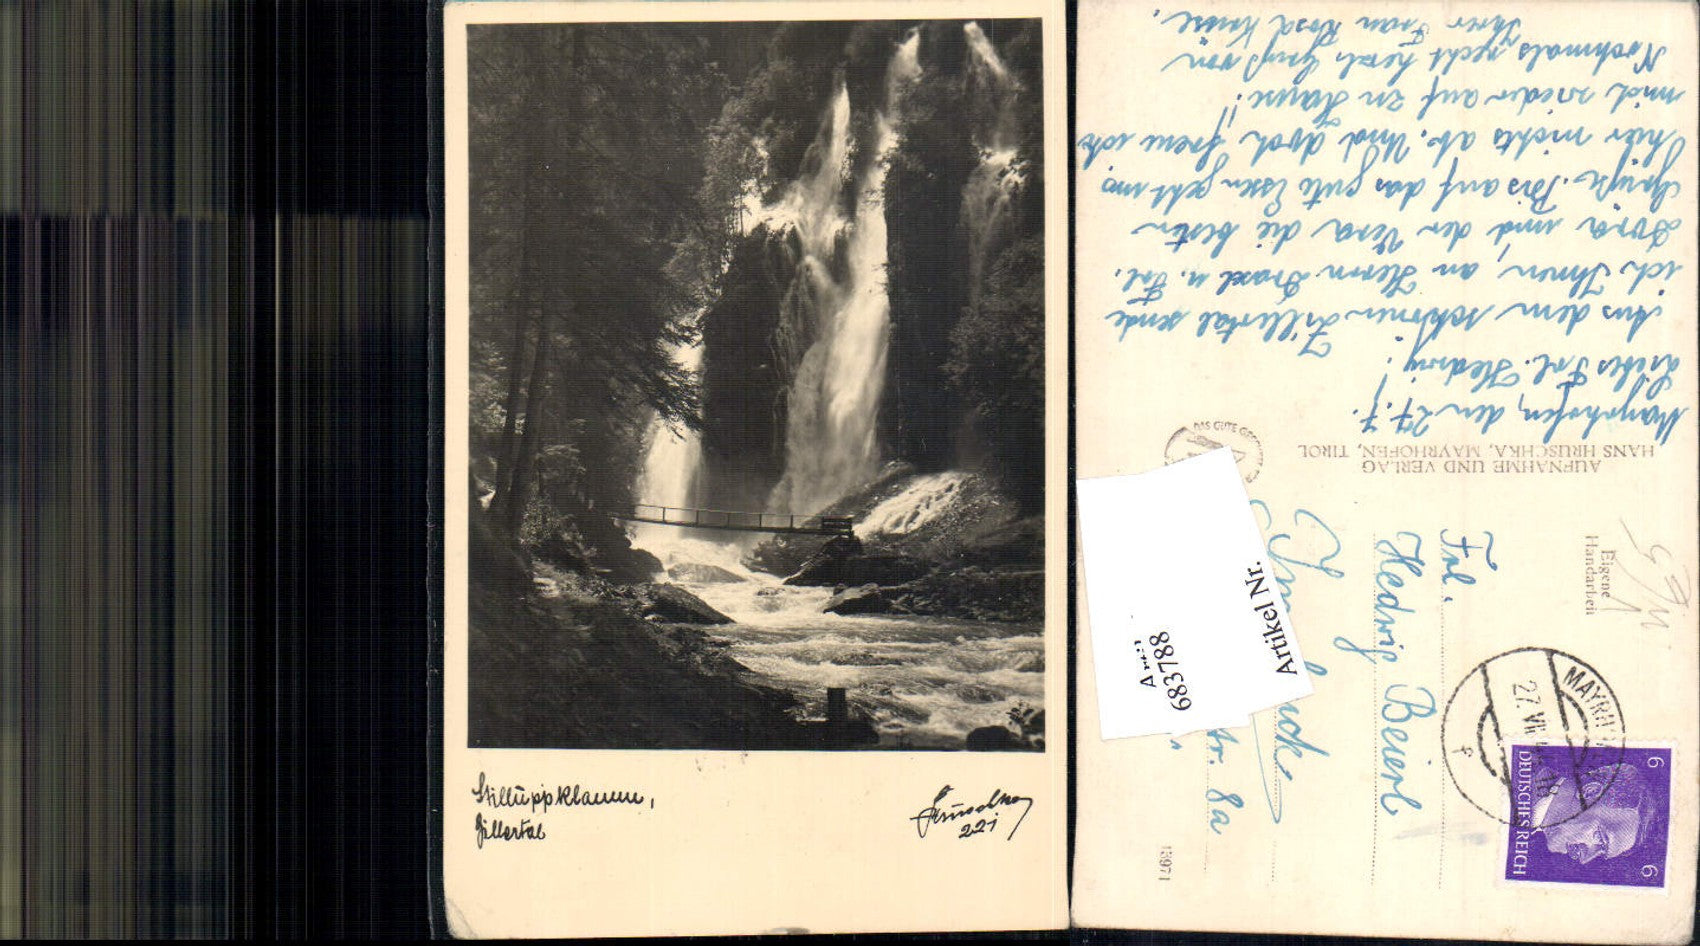 Stilluppklamm,
Zillertal
Hruschka
221
Mayrhofen, den 27.7.
Liebes Frl. Hedwig!
Aus dem schönen Zillertal sende
ich Ihnen, an Herrn Draxl u. Frl.
Dora und der Vera die besten
Grüße. Bis auf das gute Essen geht uns
hier nichts ab. Und doch freue ich
mich wieder auf zu Hause!!
Nochmals recht herzl. Gruß von
Ihrer Frau Rosa
AUFNAHME UND VERLAG
HANS HRUSCHKA, MAYRHOFEN, TIROL
DAS GUTE
Eigene
Handarbeit
Frl.
Hedwig Beierl
str. 8a
18971
MAYRH
27. VII
18
DEUTSCHES REICH
6
6
Artikel Nr.
683788